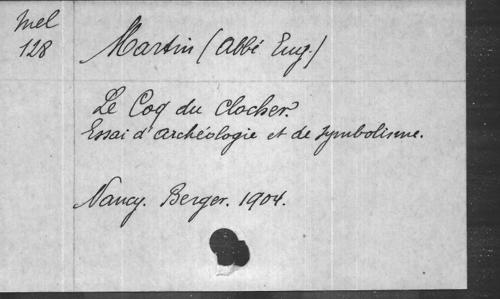 Mel
128
Martin (Abbé Eug.)
Le Coq du clocher.
Essai d'archéologie et de symbolisme.
Nancy. Berger. 1904.